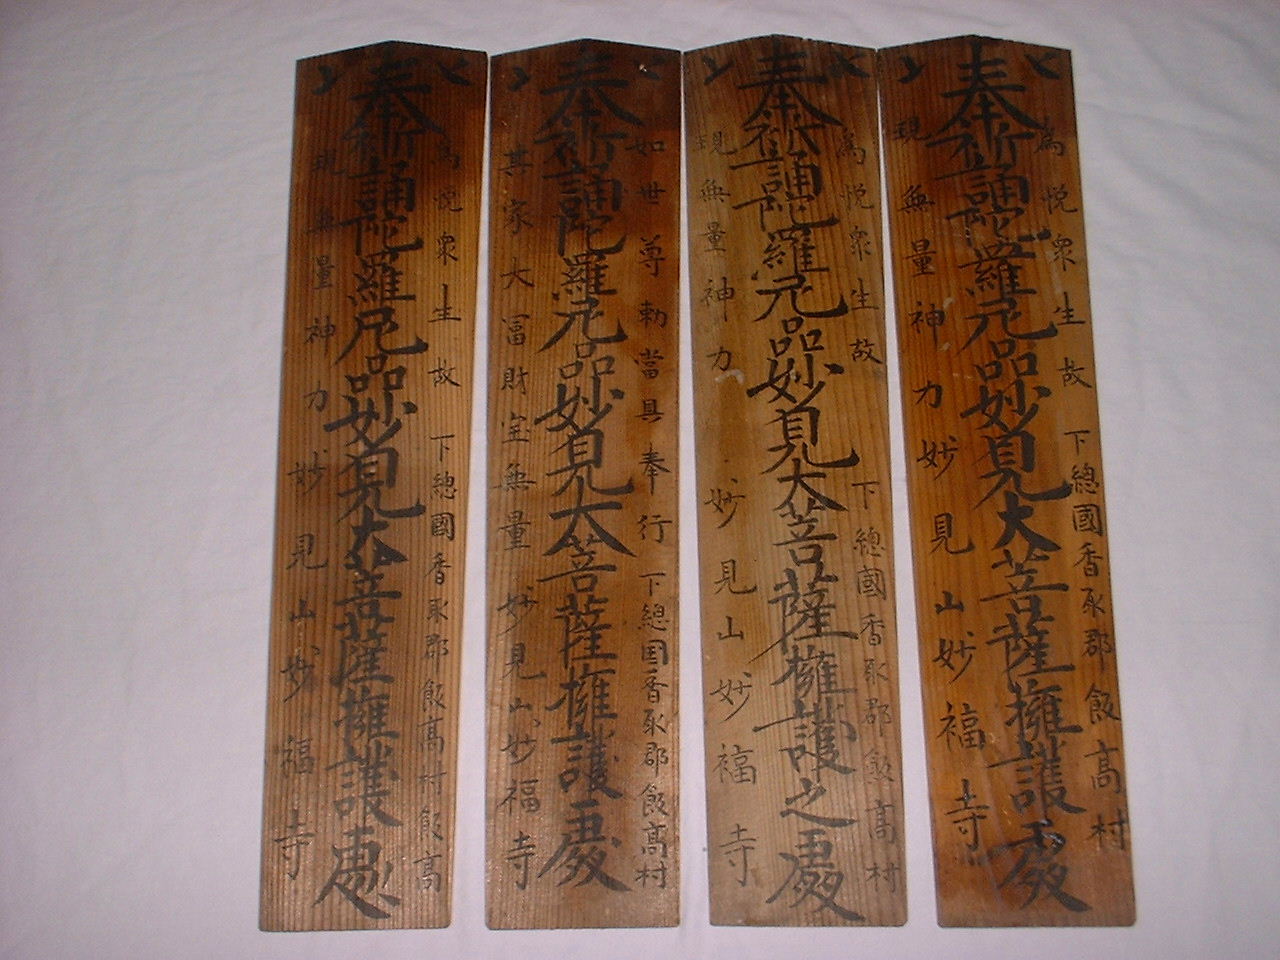 爲悦衆生故 下總國香取郡飯高村
奉祈誦陀羅尼品妙見大菩薩擁護處
現無量神力 妙見山妙福寺
爲悦衆生故 下總國香取郡飯高村
奉祈誦陀羅尼品妙見大菩薩擁護之處
現無量神力 妙見山妙福寺
如世尊勅當具奉行 下總国香取郡飯高村
奉祈誦陀羅尼品妙見大菩薩擁護處
其家大冨財宝無量 妙見山妙福寺
爲悦衆生故 下總國香取郡飯高村飯高
奉祈誦陀羅尼品妙見大菩薩擁護
現無量神力 妙見山妙福寺